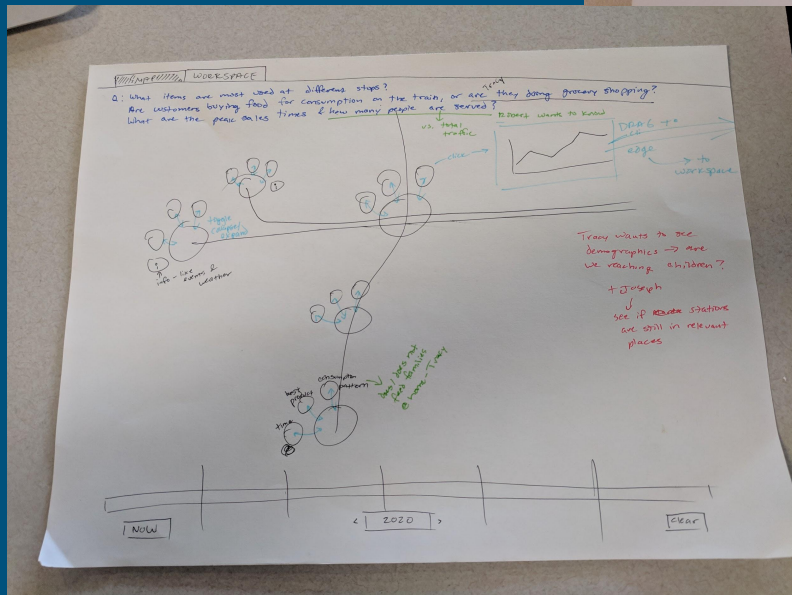 MAP WORKSPACE
Q: What items are most used at different stops?
Are customers buying food for consumption on the train, or are they doing grocery shopping?
What are the peak sales times & how many people are served?
vs. total
traffic
wants to know
click
DRAG to
edge
to
workspace
toggle
collapse/
expand
info - like
events &
weather
Tracy wants to see
demographics → are
we reaching children?
+ Joseph
see if stations
are still in relevant
places
consumption
pattern
best
product
time
does/does not
feed families
@ home - Tracy
NOW
< 2020 >
clear